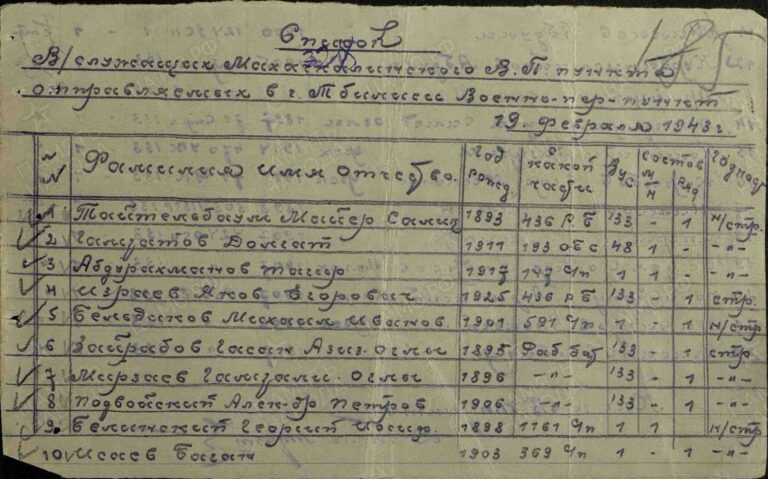 Список
В/служащих Махачкалинского В.П. пункта
отправляемых в г. Тбилисси Военно-пер-пункт
19 февраля 1943 г.
№ № Фамилия имя отчество. Год рожд. с какой части ВУС состав М/Н ряд Годность
1 Тайтельбаум Майер Самил 1893 436 р.б 133 - 1 н/стр.
2 Гамзатов Долгат 1911 193 обс 48 1 - -"-
3 Абдурахманов Тагир 1917 147 сп 1 1 - -"-
4 Израев Яков Егорович 1925 436 рб 133 - 1 стр.
5 Бельданов Михаил Иванов. 1901 591 сп 1 - 1 н/стр
6 Зайрабов Гасан Азиз-Оглы 1895 Раб. бат 133 - 1 стр
7 Мирзаев Гамзали-Оглы 1896 -"- 133 - 1 -"-
8 Подвойский Алек-др Петров 1906 -"- 133 - 1 -"-
9. Белинский Георгий 1898 1161 сп 1 1 н/стр
10 Исаев Багат 1903 369 сп 1 - 1 -"-